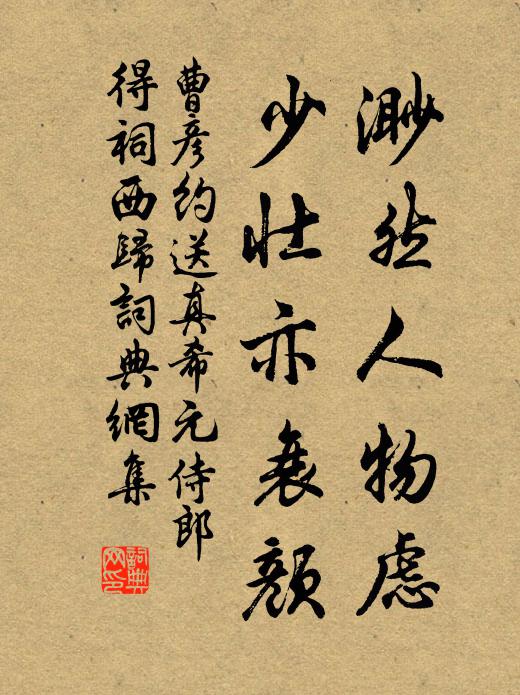 渺然人物慮
少壯亦衰顏
曹彥約送真希元侍郎
得祠西歸詞典網集
詞典网印